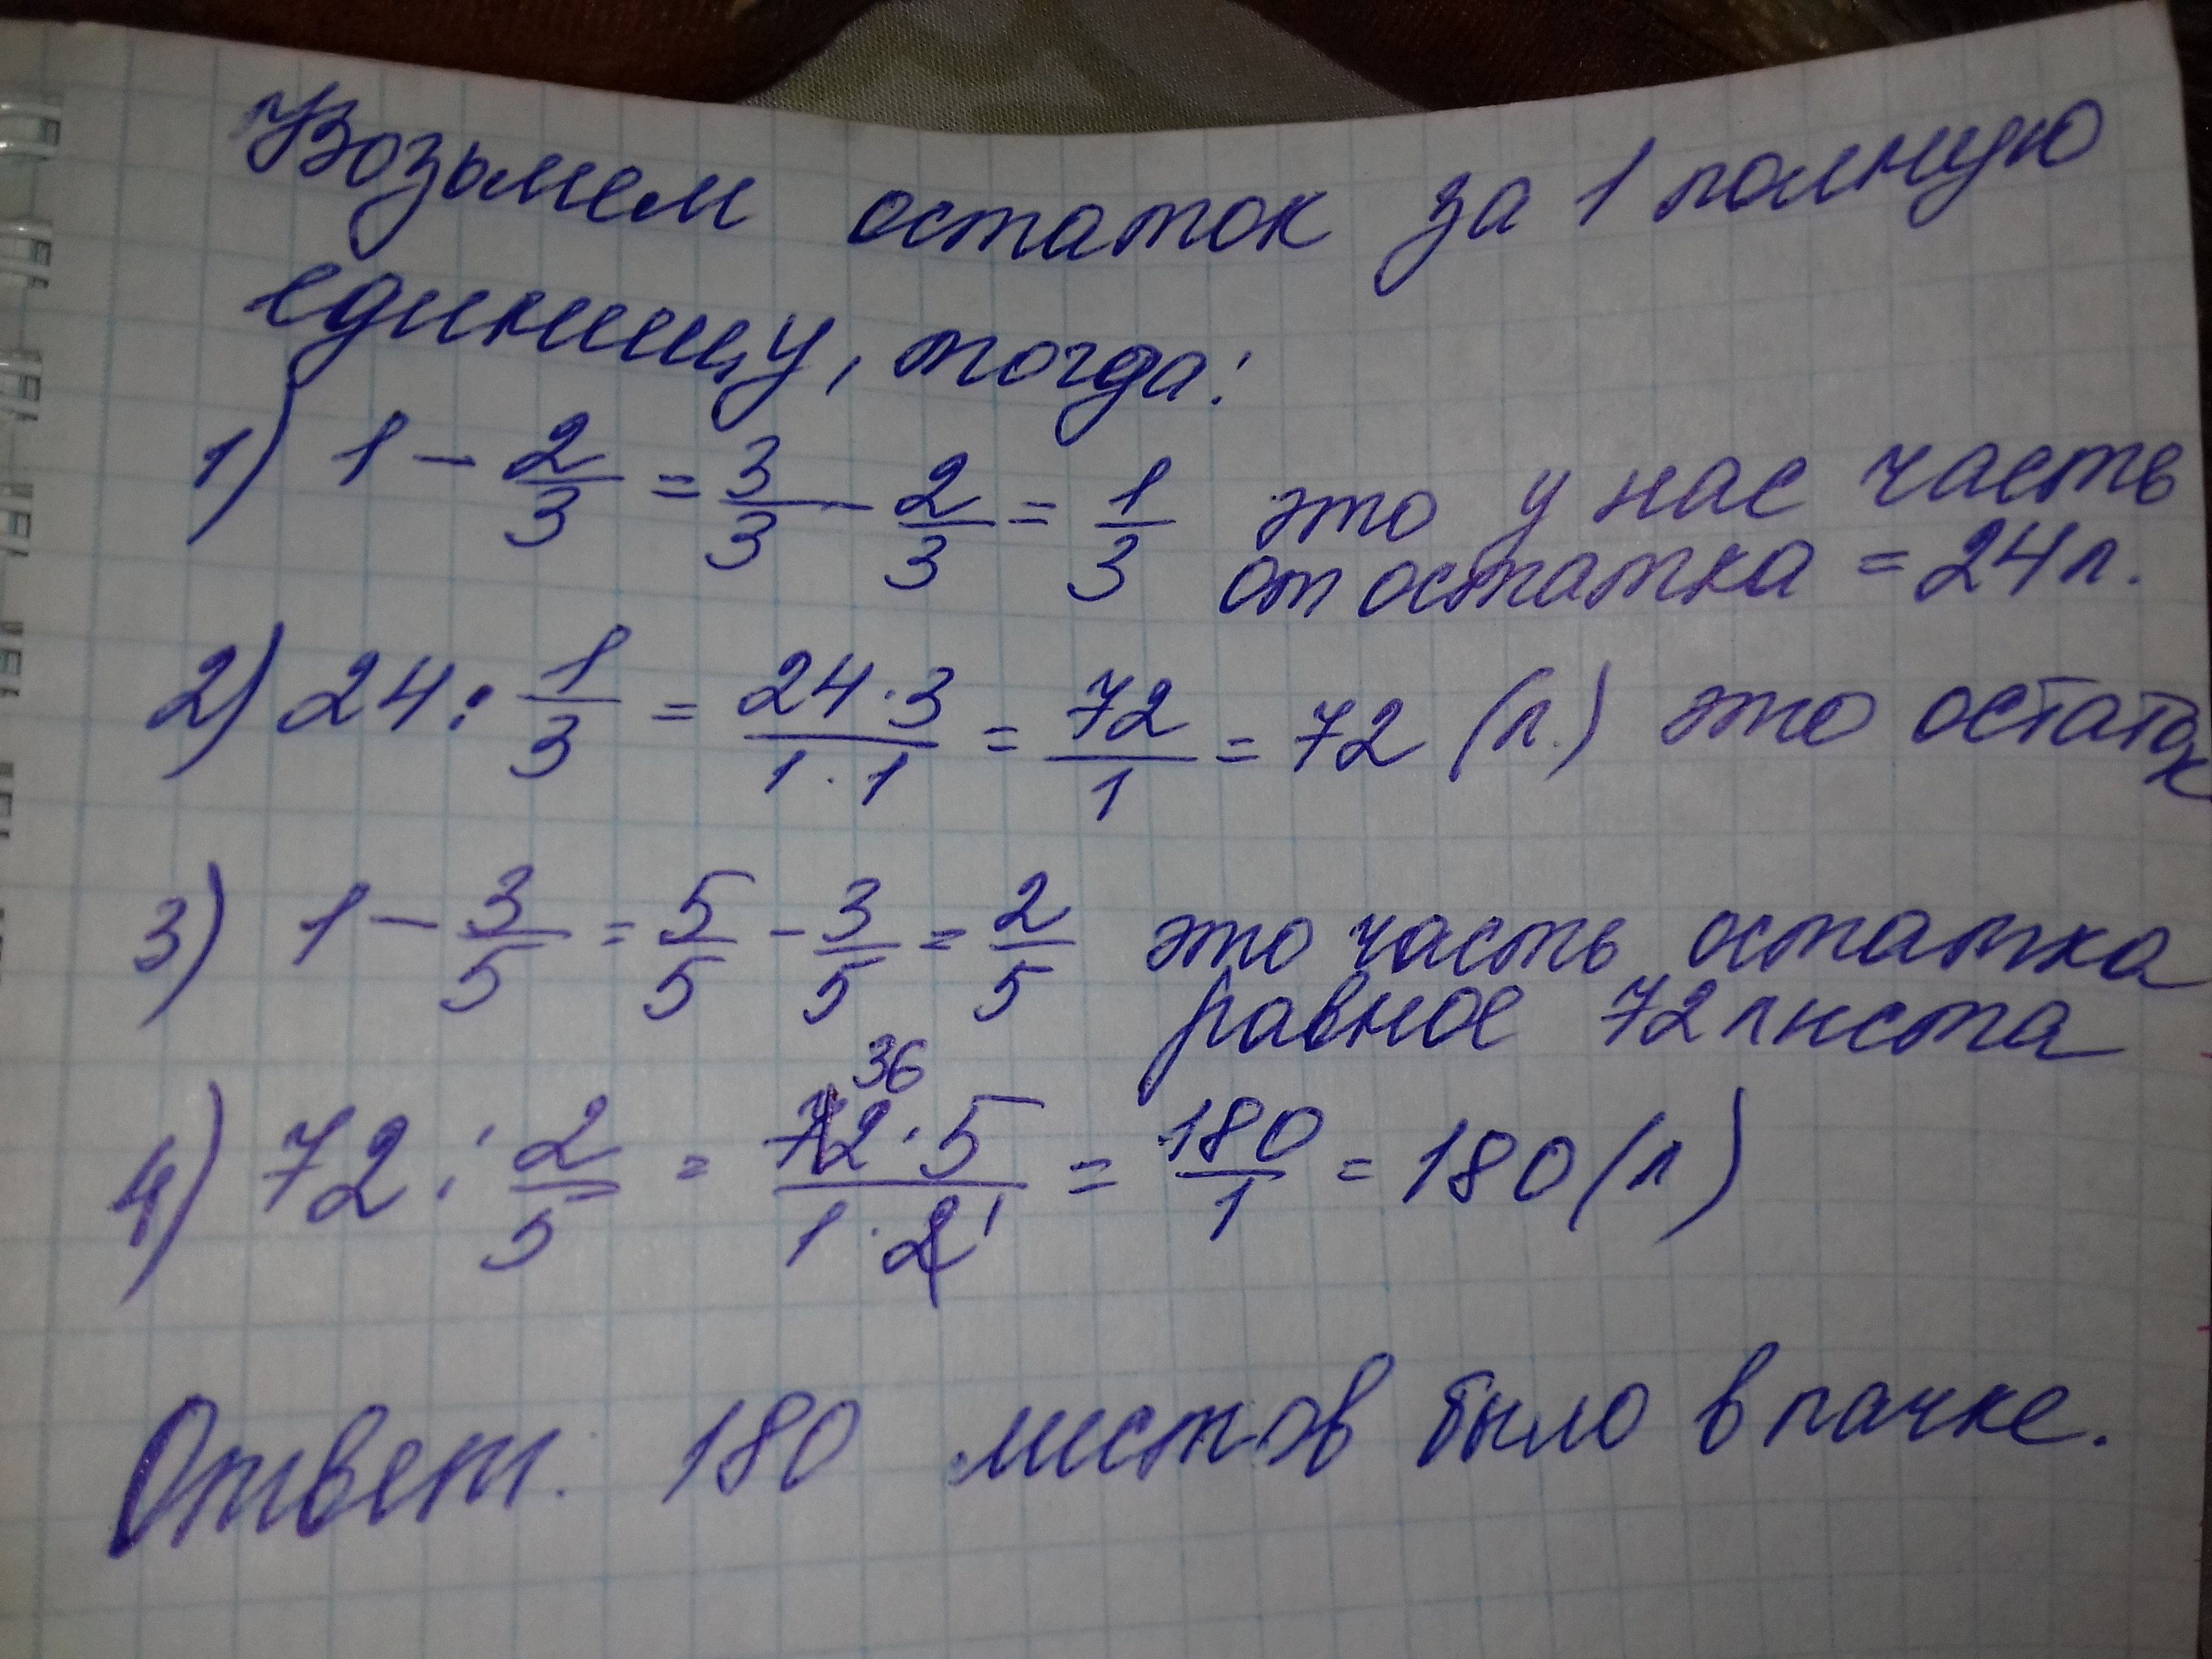 Возьмем остаток за 1 полную
единицу, тогда:
1) 1 - 2/3 = 3/3 - 2/3 = 1/3 это у нас часть
от остатка = 24 л.
2) 24 : 1/3 = 24·3/1·1 = 72/1 = 72 (л.) это остаток
3) 1 - 3/5 = 5/5 - 3/5 = 2/5 это часть остатка
равное 72 листа
36
4) 72 : 2/5 = 72·5/1·2 1 = 180/1 = 180 (л)
Ответ: 180 листов было в пачке.